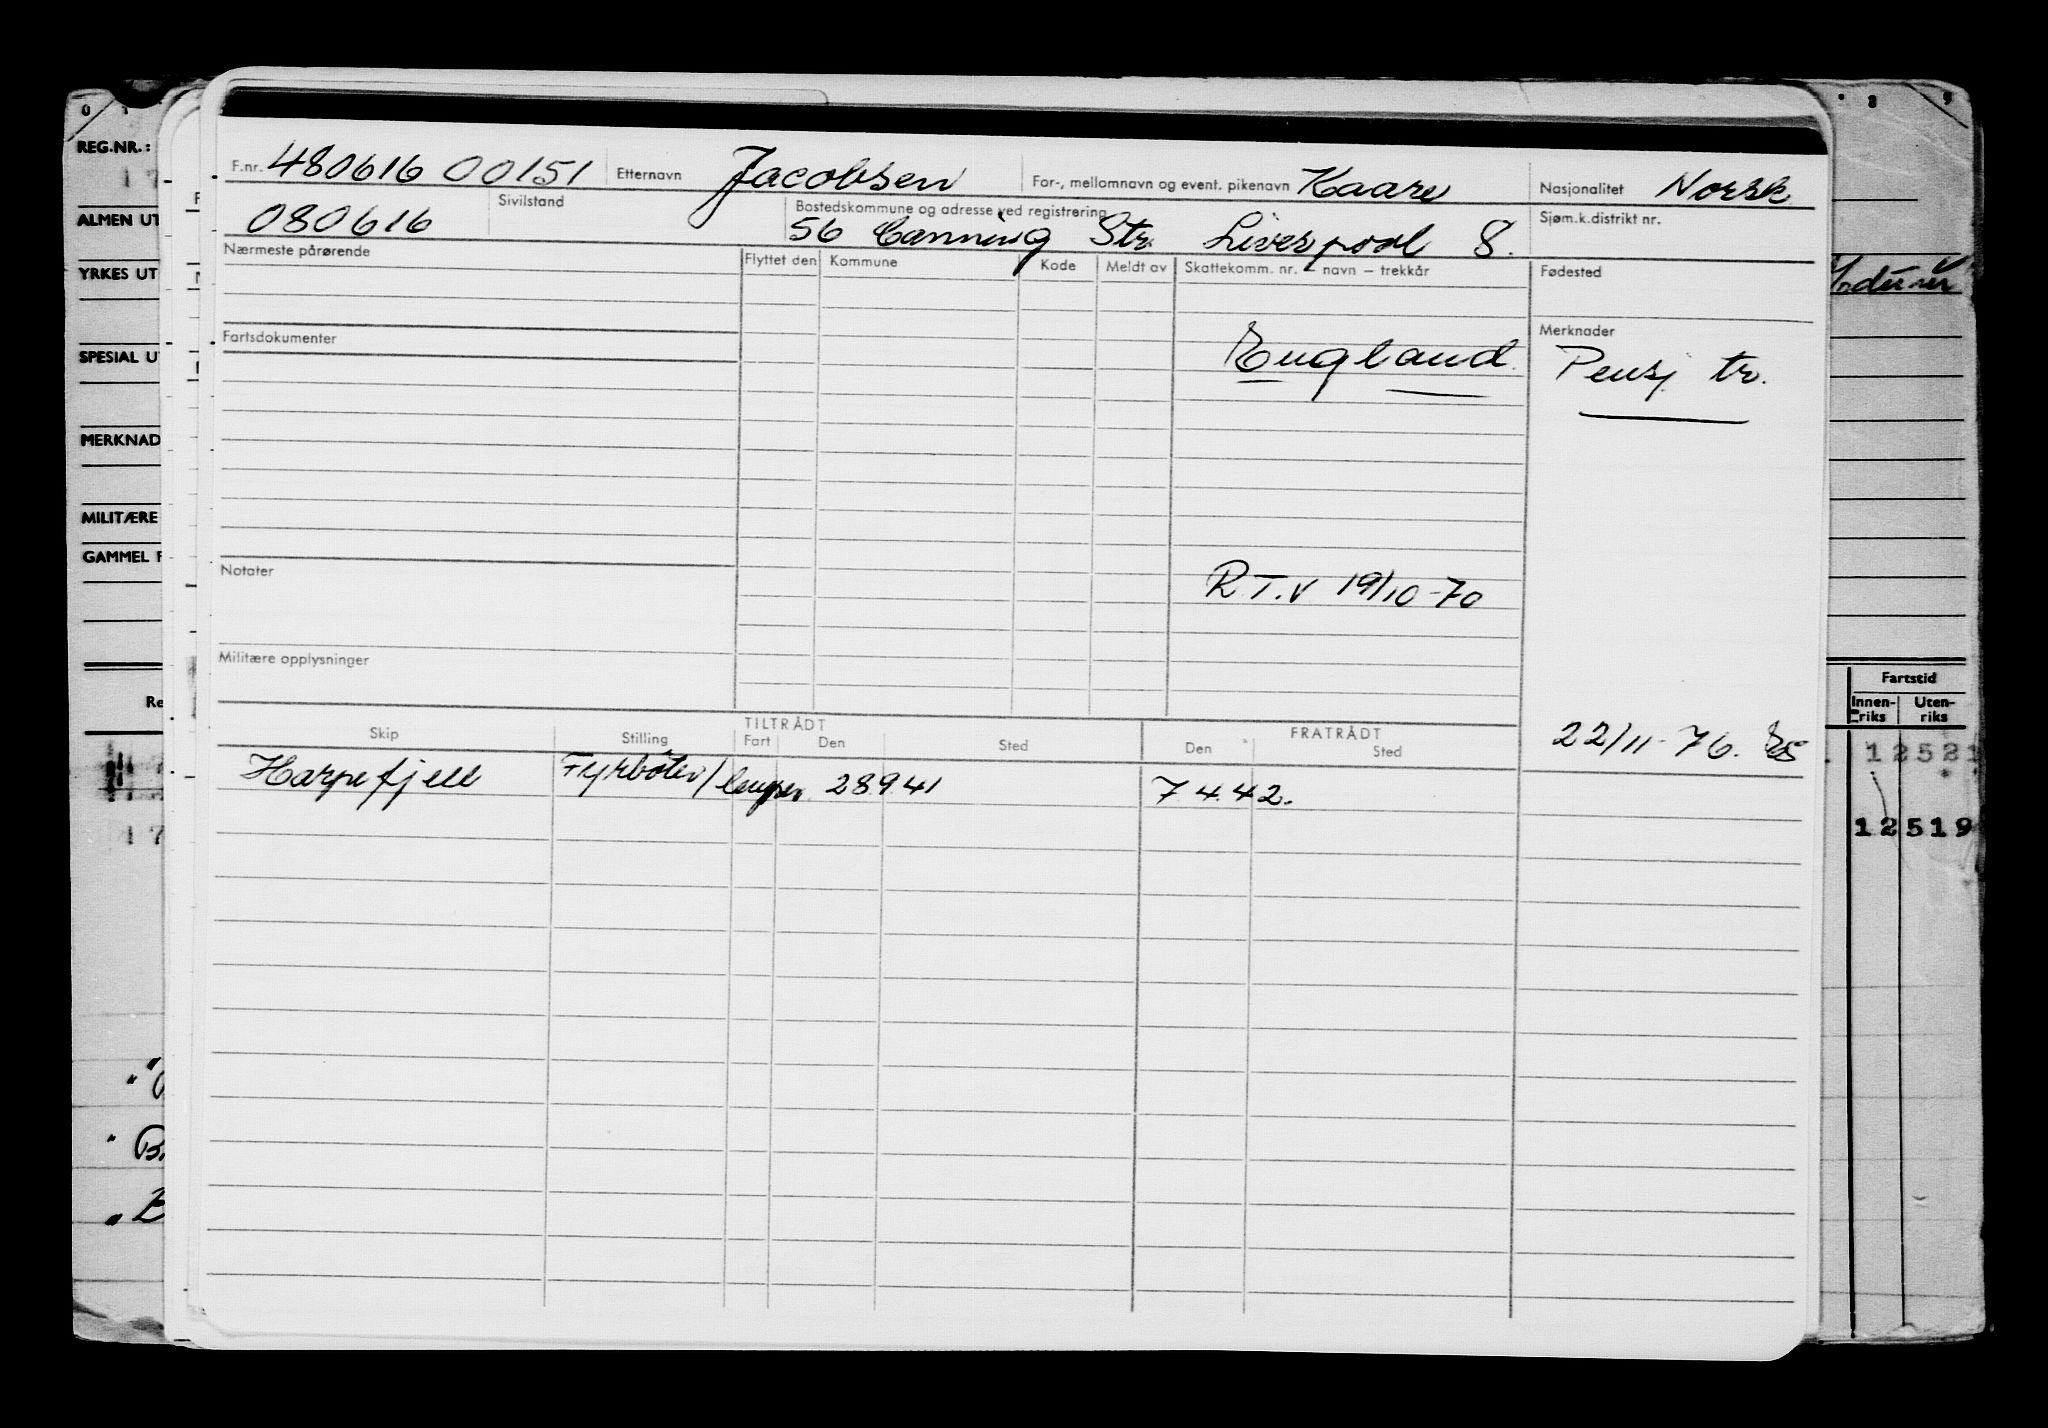 0 1 8 9
REG.NR.:
ALMEN UT
YRKES UT
SPESIAL U
MERKNAD
MILITÆRE
GAMMEL F
Re
F.nr. 480616 00151 Etternavn Jacobsen For-, mellomnavn og event. pikenavn Kaare Nasjonalitet Norsk
080616 Sivilstand Bostedskommune og adresse ved registrering 56 Canning Str. Liverpool 8. Sjøm.k.distrikt nr.
Nærmeste pårørende Flyttet den Kommune Kode Meldt av Skattekomm. nr. – navn – trekkår Fødested
Fartsdokumenter England. Merknader
Pensj tr.
Notater R.T.V 19/10-70
Militære opplysninger
TILTRÅDT FRATRÅDT 22/11-76.
Skip Stilling Fart Den Sted Den Sted
Harpefjell Fyrbøter/lemper 28941 7.4.42.
Fartstid
Innen-riks Uten-riks
12521
12519
17